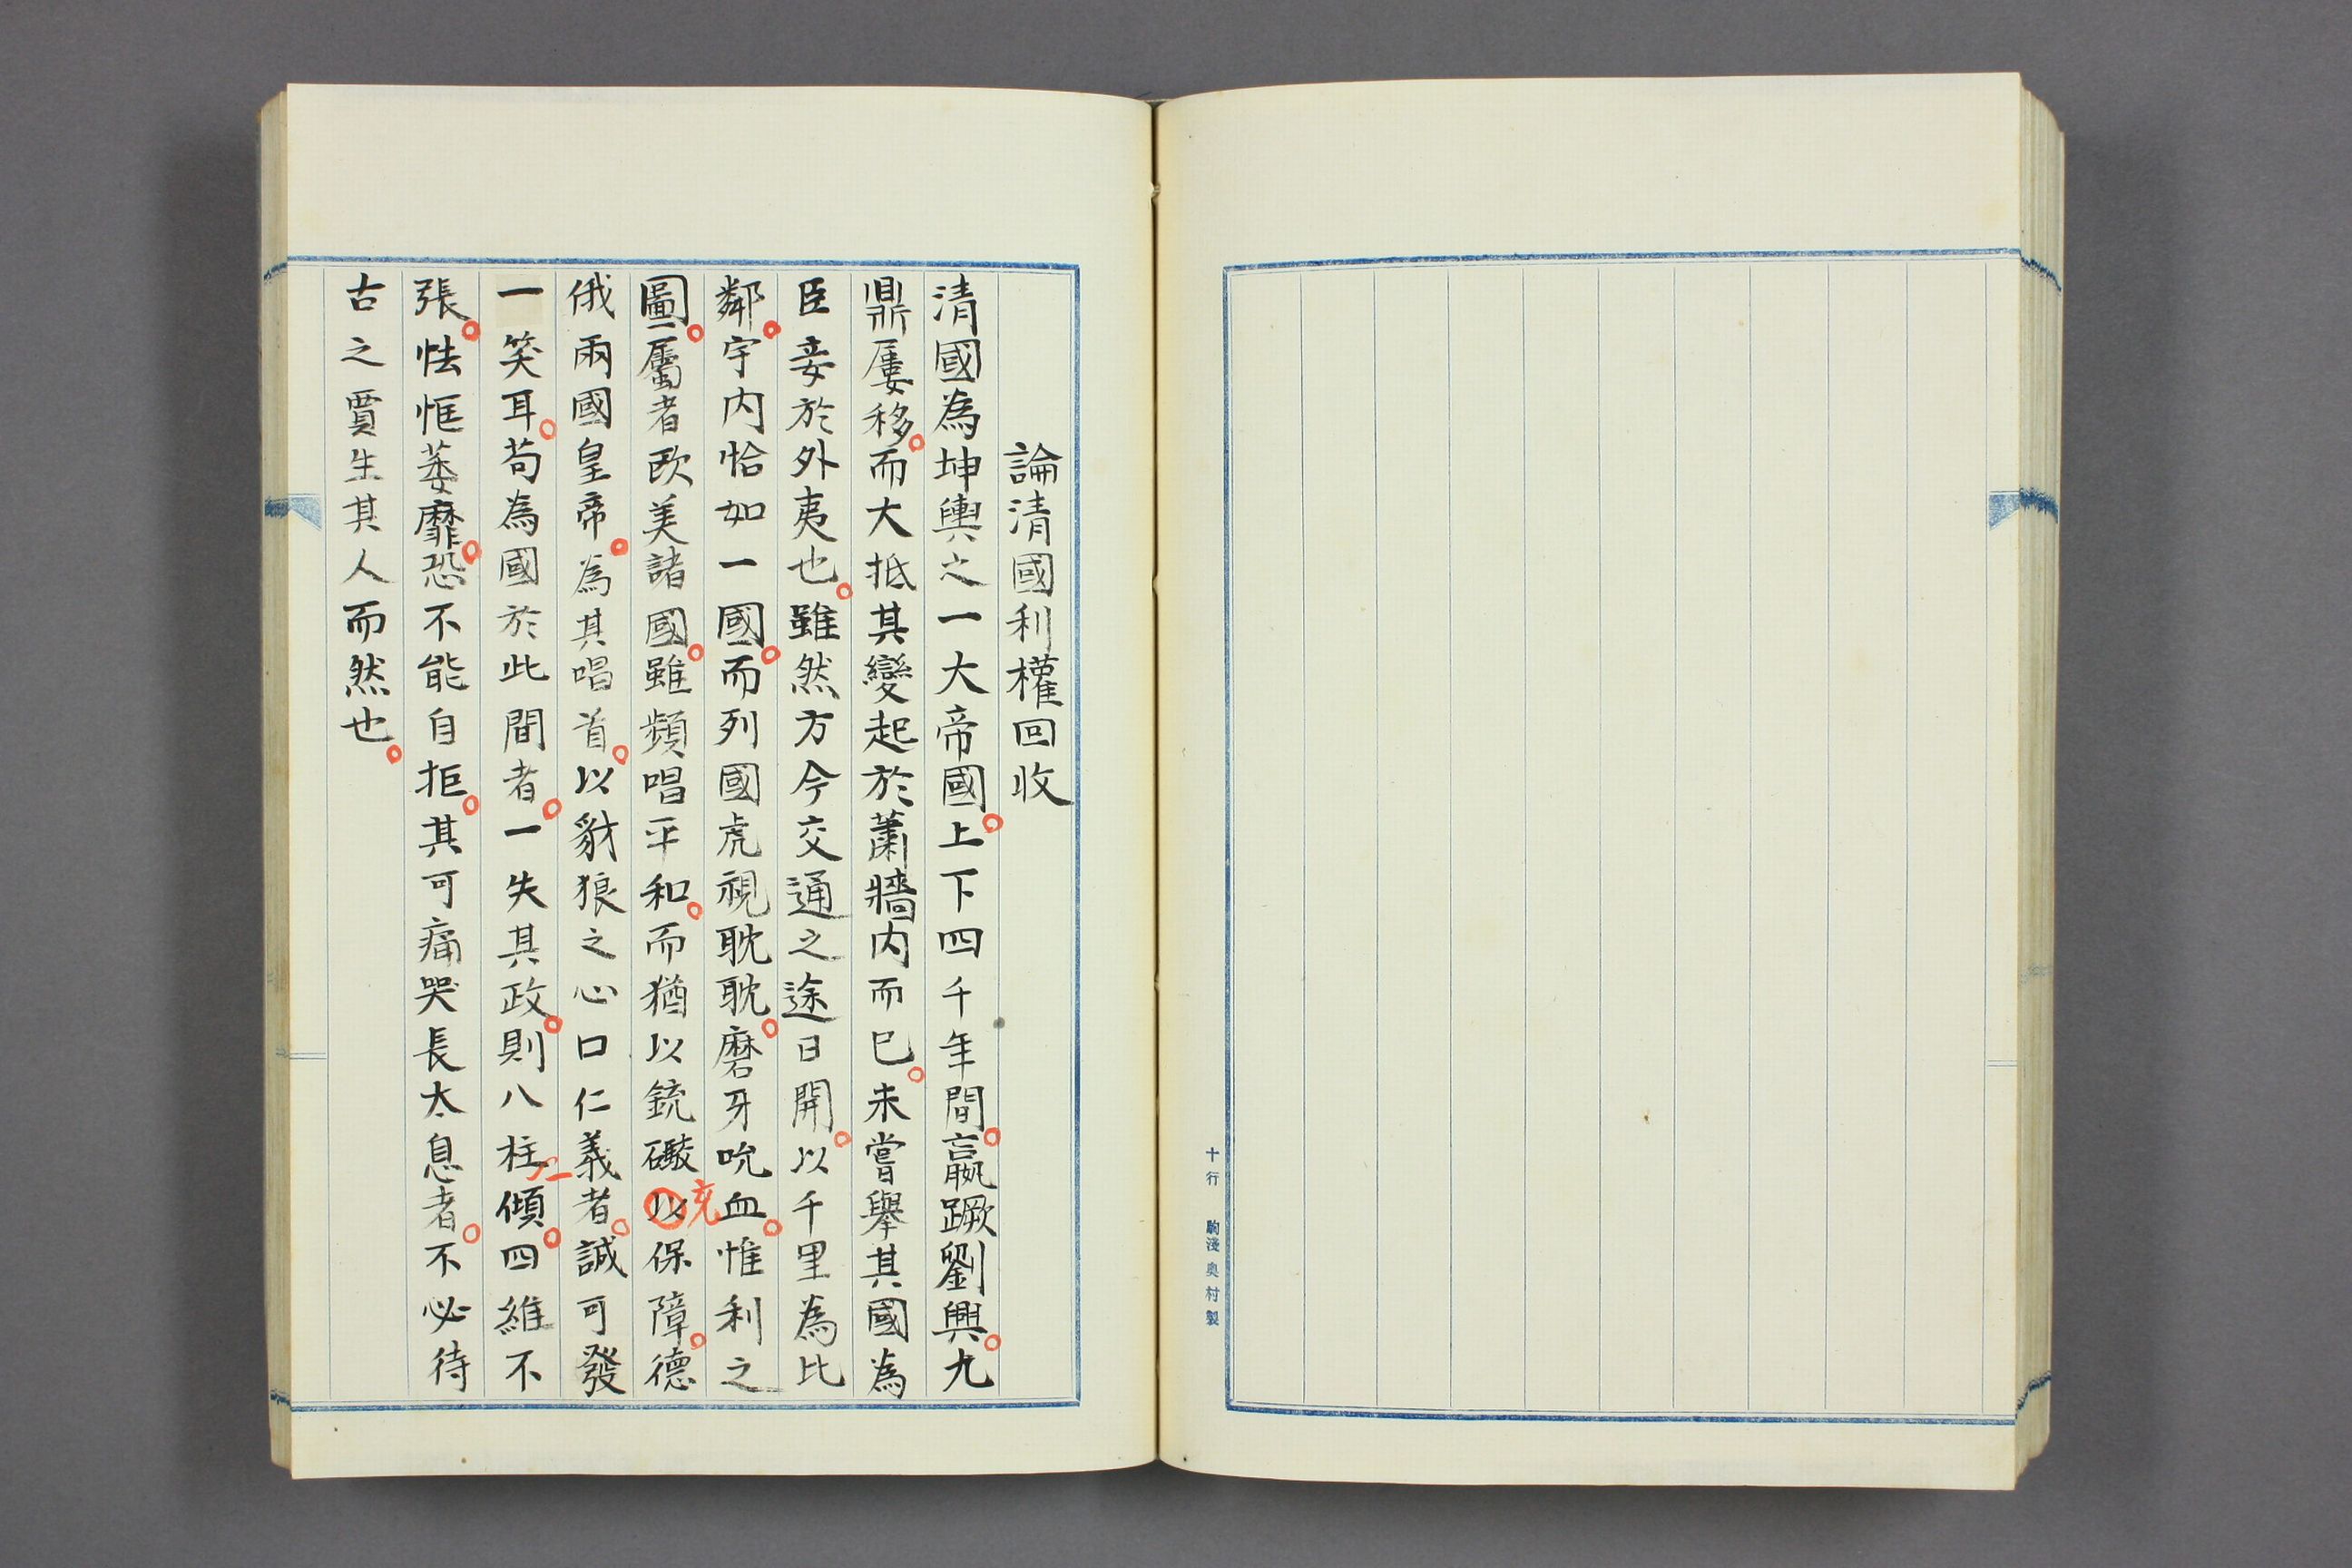 十行 駒淺奥村製
論清國利權回收
清國為坤輿之一大帝國。上下四千年間。嬴蹶劉興。九
鼎屢移。而大抵其變起於蕭牆内而已。未嘗舉其國為
臣妾於外夷也。雖然方今交通之途日開。以千里為比
鄰。宇内恰如一國。而列國虎視耽耽。磨牙吮血。惟利之
圖。屬者欧美諸國。雖頻唱平和。而猶以銃礮以保障。德
充
俄兩國皇帝。為其唱首。以豺狼之心口仁義者。誠可發
一笑耳。苟為國於此間者。一失其政。則八柱傾。四維不
張。怯恇萎靡。恐不能自拒。其可痛哭長太息者。不必待
古之賈生其人而然也。